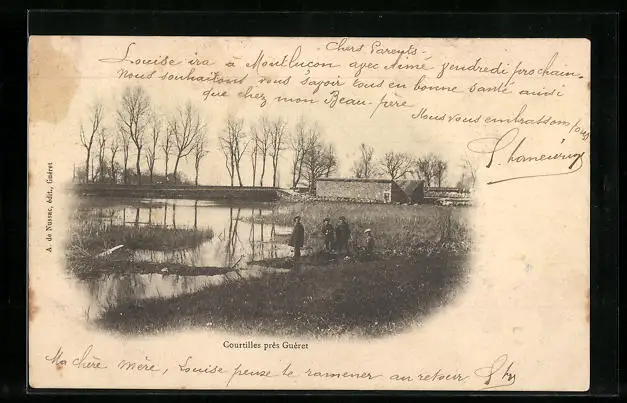 Chers Parents -
Louise ira à Montluçon avec Aimé vendredi prochain -
Nous souhaitons vous savoir tous en bonne santé ainsi
que chez mon Beau-père
Nous vous embrassons
A. de Nussac, édit., Guéret
Courtilles près Guéret
Ma chère mère, Louise pense te ramener au retour